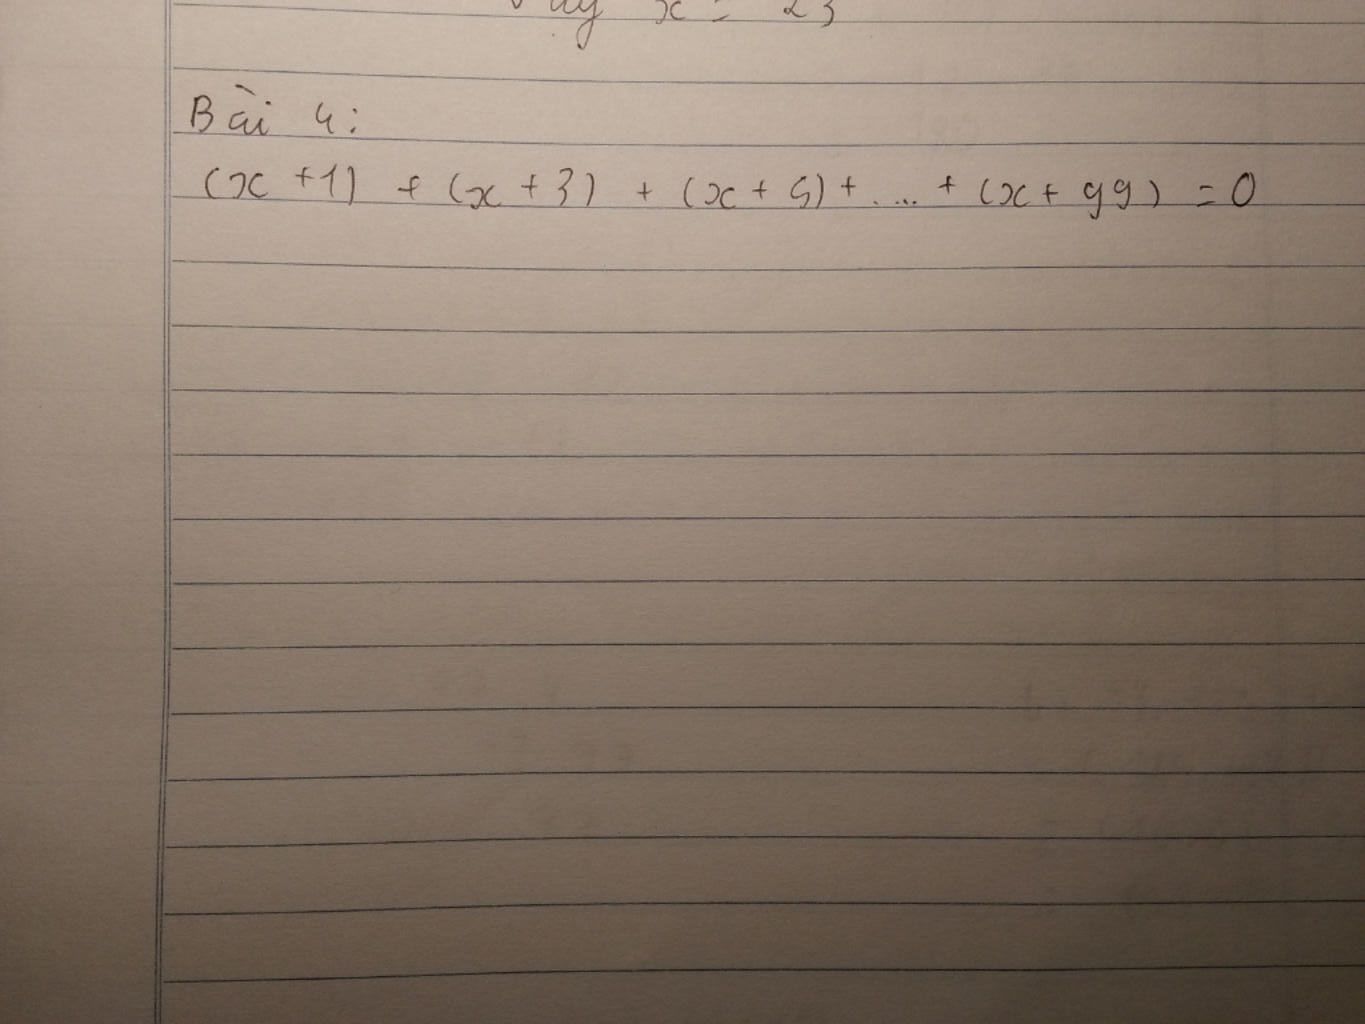 Vậy x = 23
Bài 4:
(x + 1) + (x + 3) + (x + 5) + .... + (x + 99) = 0